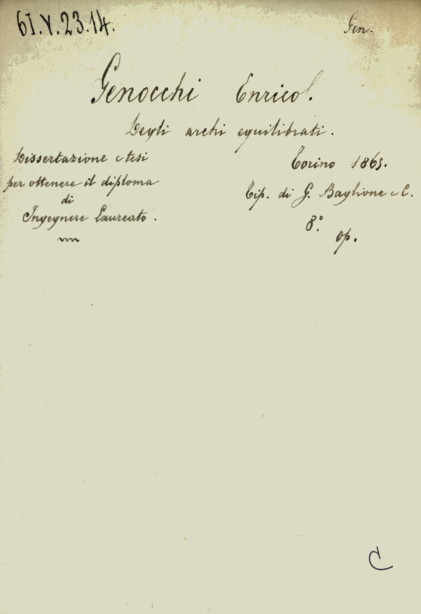 61.V.23.14.
Gen.
Genocchi Enrico.
Degli archi equilibrati.
Dissertazione e tesi
per ottenere il diploma
di
Ingegnere Laureato.
Torino 1865.
Tip. di G. Baglione e C.
8°
op.
C